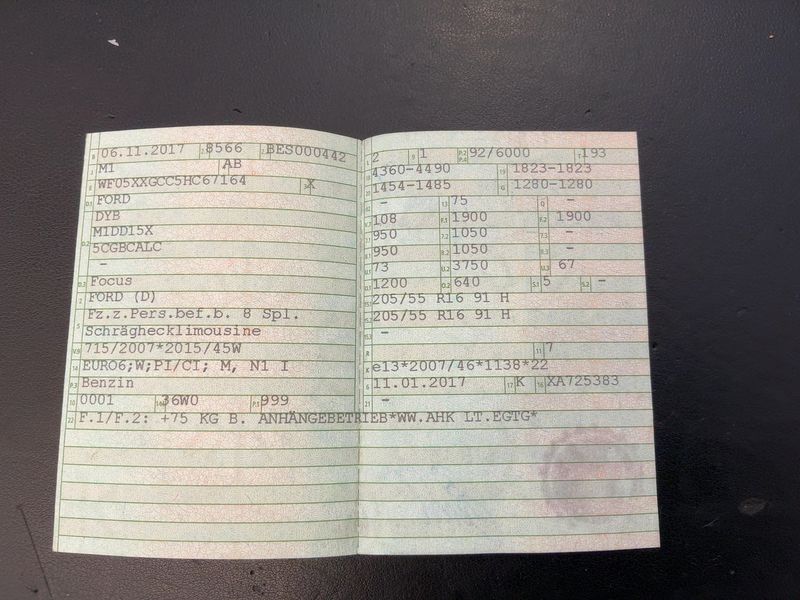 B 06.11.2017 2.1 8566 2.2 BES000442
J M1 4 AB
E WF05XXGCC5HC67164 3 X
D.1 FORD
DYB
D.2 M1DD15X
5CGBCALC
–
D.3 Focus
2 FORD (D)
5 Fz.z.Pers.bef.b. 8 Spl.
Schräghecklimousine
V.9 715/2007*2015/45W
14 EURO6;W;PI/CI; M, N1 I
P.3 Benzin
10 0001 14.1 36W0 P.1 999
22 F.1/F.2: +75 KG B. ANHÄNGEBETRIEB*WW.AHK LT.EGTG*
L 2 9 1 P.2 P.4 92/6000 T 193
18 4360-4490 19 1823-1823
20 1454-1485 G 1280-1280
12 – 13 75 Q –
V.7 108 F.1 1900 F.2 1900
7.1 950 7.2 1050 7.3 –
8.1 950 8.2 1050 8.3 –
U.1 73 U.2 3750 U.3 67
O.1 1200 O.2 640 S.1 5 S.2 –
15.1 205/55 R16 91 H
15.2 205/55 R16 91 H
15.3 –
R 11 7
K e13*2007/46*1138*22
6 11.01.2017 17 K 16 XA725383
21 –